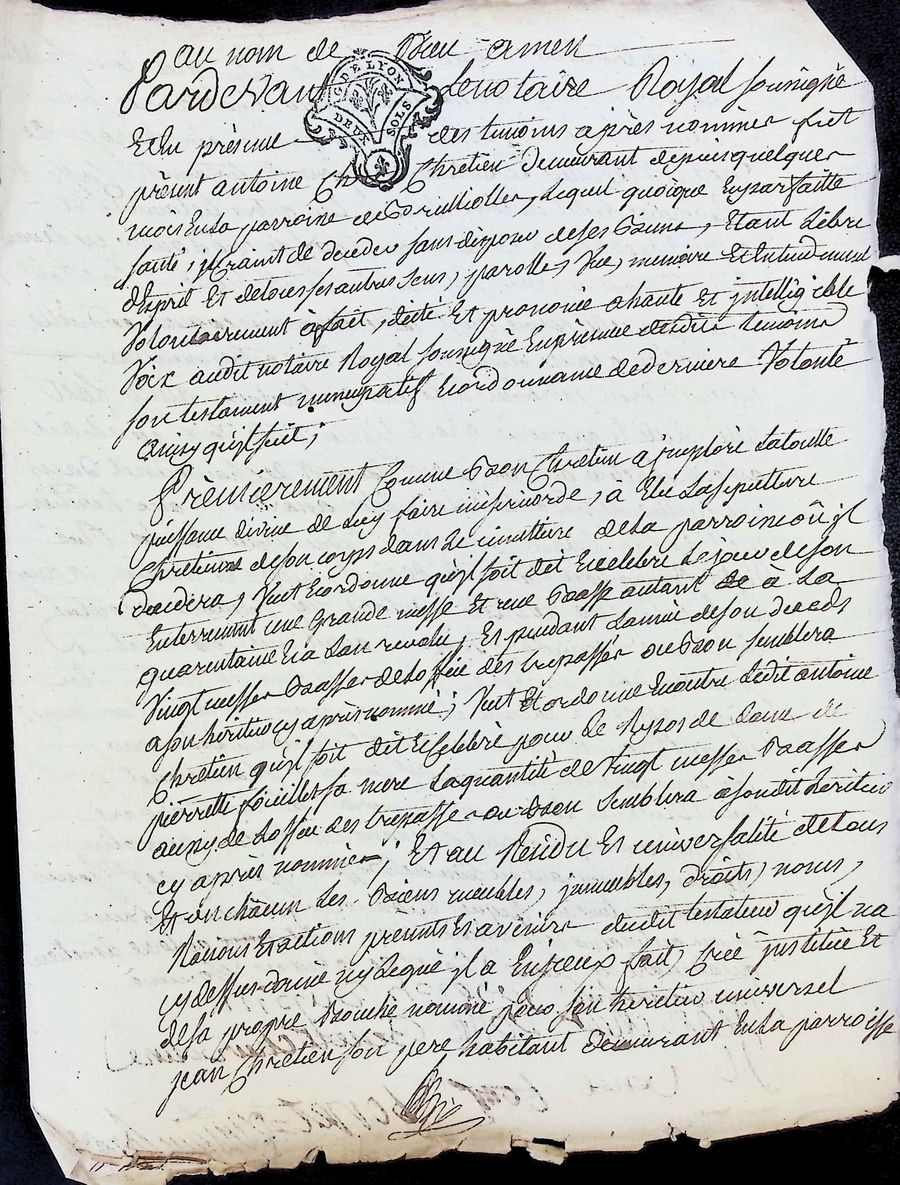 au nom de Dieu amen
Pardevant le notaire Royal soussigné
G. DE LYON
DEUX SOLS
Et en présence des temoins après nommés fut
présent antoine Chretien demeurant depuis quelques
mois en la parroisse de Brullioles, lequel quoique en parfaitte
santé, craint de deceder sans disposer de ses biens, Etant Libre
d'Esprit Et de tous ses autres sens, parolle, Vüe, memoire Et Entendement
Volontairement à fait, dicté Et prononcé a haute Et jntelligible
Voix audit notaire Royal soussigné En présence desdits temoins
son testament nuncupatif Et ordonnance de derniere Volonté
ainsy qu'il suit ;
Prèmierement Comme bon Chretien a jmploré La toutte
puissance divine de Luy faire misericorde, à Elu La sepulture
Chretienne de son corps dans Le cimettiere de La parroisse où jl
decedera, Veut Et ordonne qu'il soit dit Et celebré Le jour de son
Enterrement une Grande messe Et une basse autant à La
quarantaine Et a L'an revolu, Et pendant L'année de son deceds
Vingt messes basses de L'office des trepassés où bon semblera
a son héritier cy après nommé ; Veut Et ordonne En outre Ledit antoine
Chrétien qu'il soit dit Et celebré pour Le Repos de L'ame de
pierrette sa mere La quantité de Vingt messes basses
aussy de L'office des trepassés où bon semblera à sondit heritier
cy après nommé ; Et au Résidu Et universalité de tous
Et un châcun Les biens meubles, jmmeubles, droits, noms,
Raisons Et actions présents Et avenirs dudit testateur qu'il n'a
cy dessus donné ny Legué jl a En jceux fait, créé jnstitué Et
de sa propre bouche nommé pour son heritier universel
jean Chretien son pere habitant demeurant En La parroisse